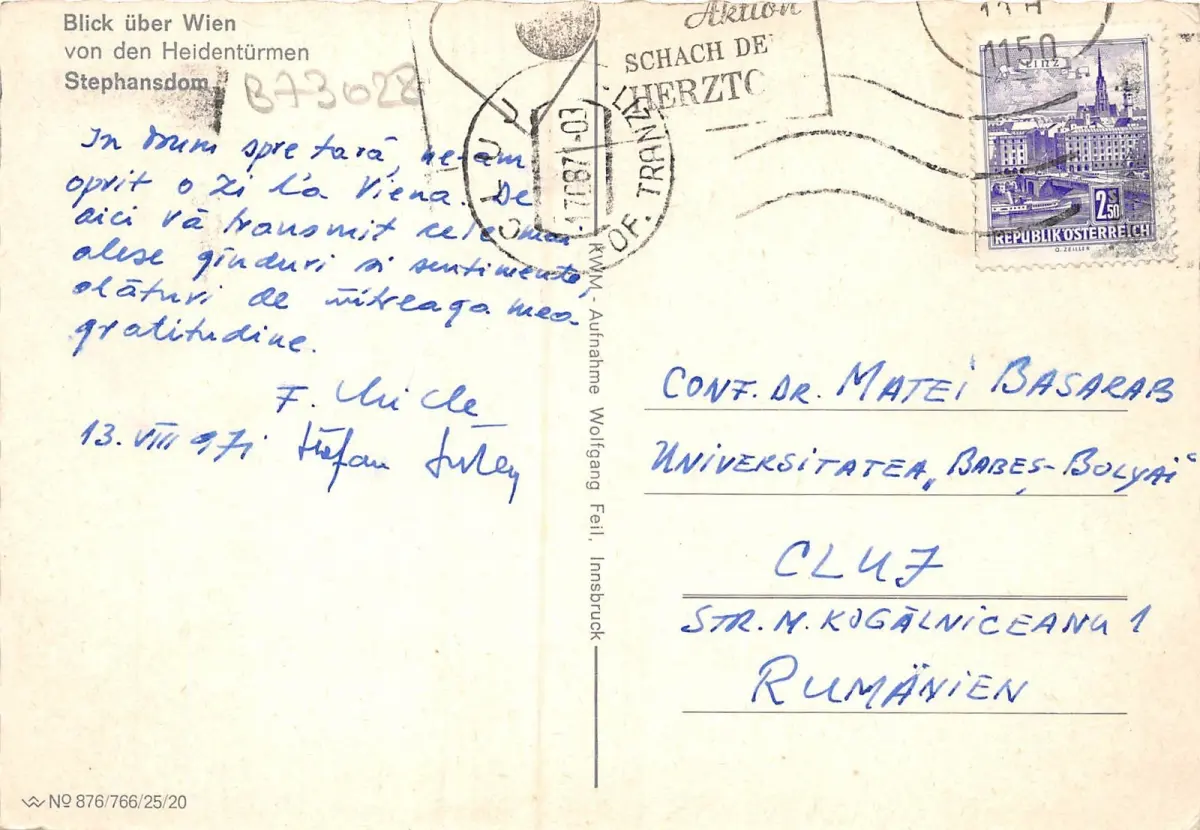 Blick über Wien
von den Heidentürmen
Stephansdom
B73028
In drum spre tară, ne-am
oprit o zi la Viena. De
aici vă transmit cele mai
alese gînduri și sentimente,
alături de întreaga mea
gratitudine.
13. VIII 971 Ștefan
Aktion
SCHACH DE
HERZTO
CLUJ
OF. TRANZIT
1150
LINZ
2.50
S
REPUBLIK ÖSTERREICH
KWM - Aufnahme Wolfgang Feil, Innsbruck
CONF. DR. MATEI BASARAB
UNIVERSITATEA „BABEȘ-BOLYAI“
CLUJ
STR. M. KOGĂLNICEANU 1
RUMÄNIEN
№ 876/766/25/20